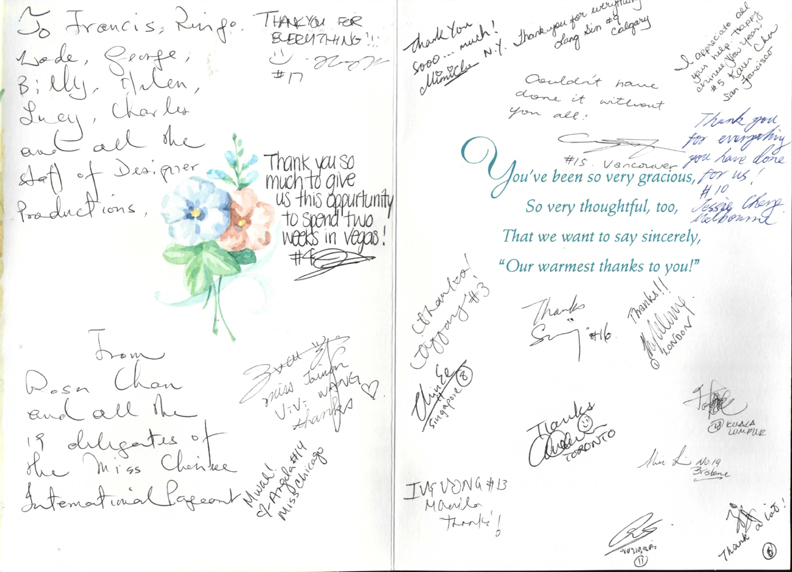 To Francis, Ringo,
Wade, George,
Billy, Helen,
Lucy, Charles
and all the
staff of Designer
Productions,
THANK YOU FOR
EVERYTHING!!!
#17
Thank you so
much to give
us this oppurtunity
to spend two
weeks in Vegas!
From
Rosa Chan
and all the
19 delegates of
the Miss Chinese
International Pageant
Miss Taiwan
ViVi WANG
thanks
Mwah!
Angela #14
Miss Chicago
Thank You
Sooo... much!
Mimi Chu N.Y.
Thank you for everything
#9
Calgary
I appreciate all
your help - happy
chinese New Year!
#5 Karen Chan
San Francisco
Couldn't have
done it without
you all!
#15 VANCOUVER
Thank you
for everything
you have done
for us!
#10
Jessie Cheng
Melbourne
You've been so very gracious,
So very thoughtful, too,
That we want to say sincerely,
"Our warmest thanks to you!"
thanks!
Tiffany #3
Thanks
#16
Thanks!!
LONDON
Singapore 8
Thanks
TORONTO
KUALA
LUMPUR
No 19
Brisbane
IVY VONG #13
Manila
Thanks!
11
Thank a lot!
6